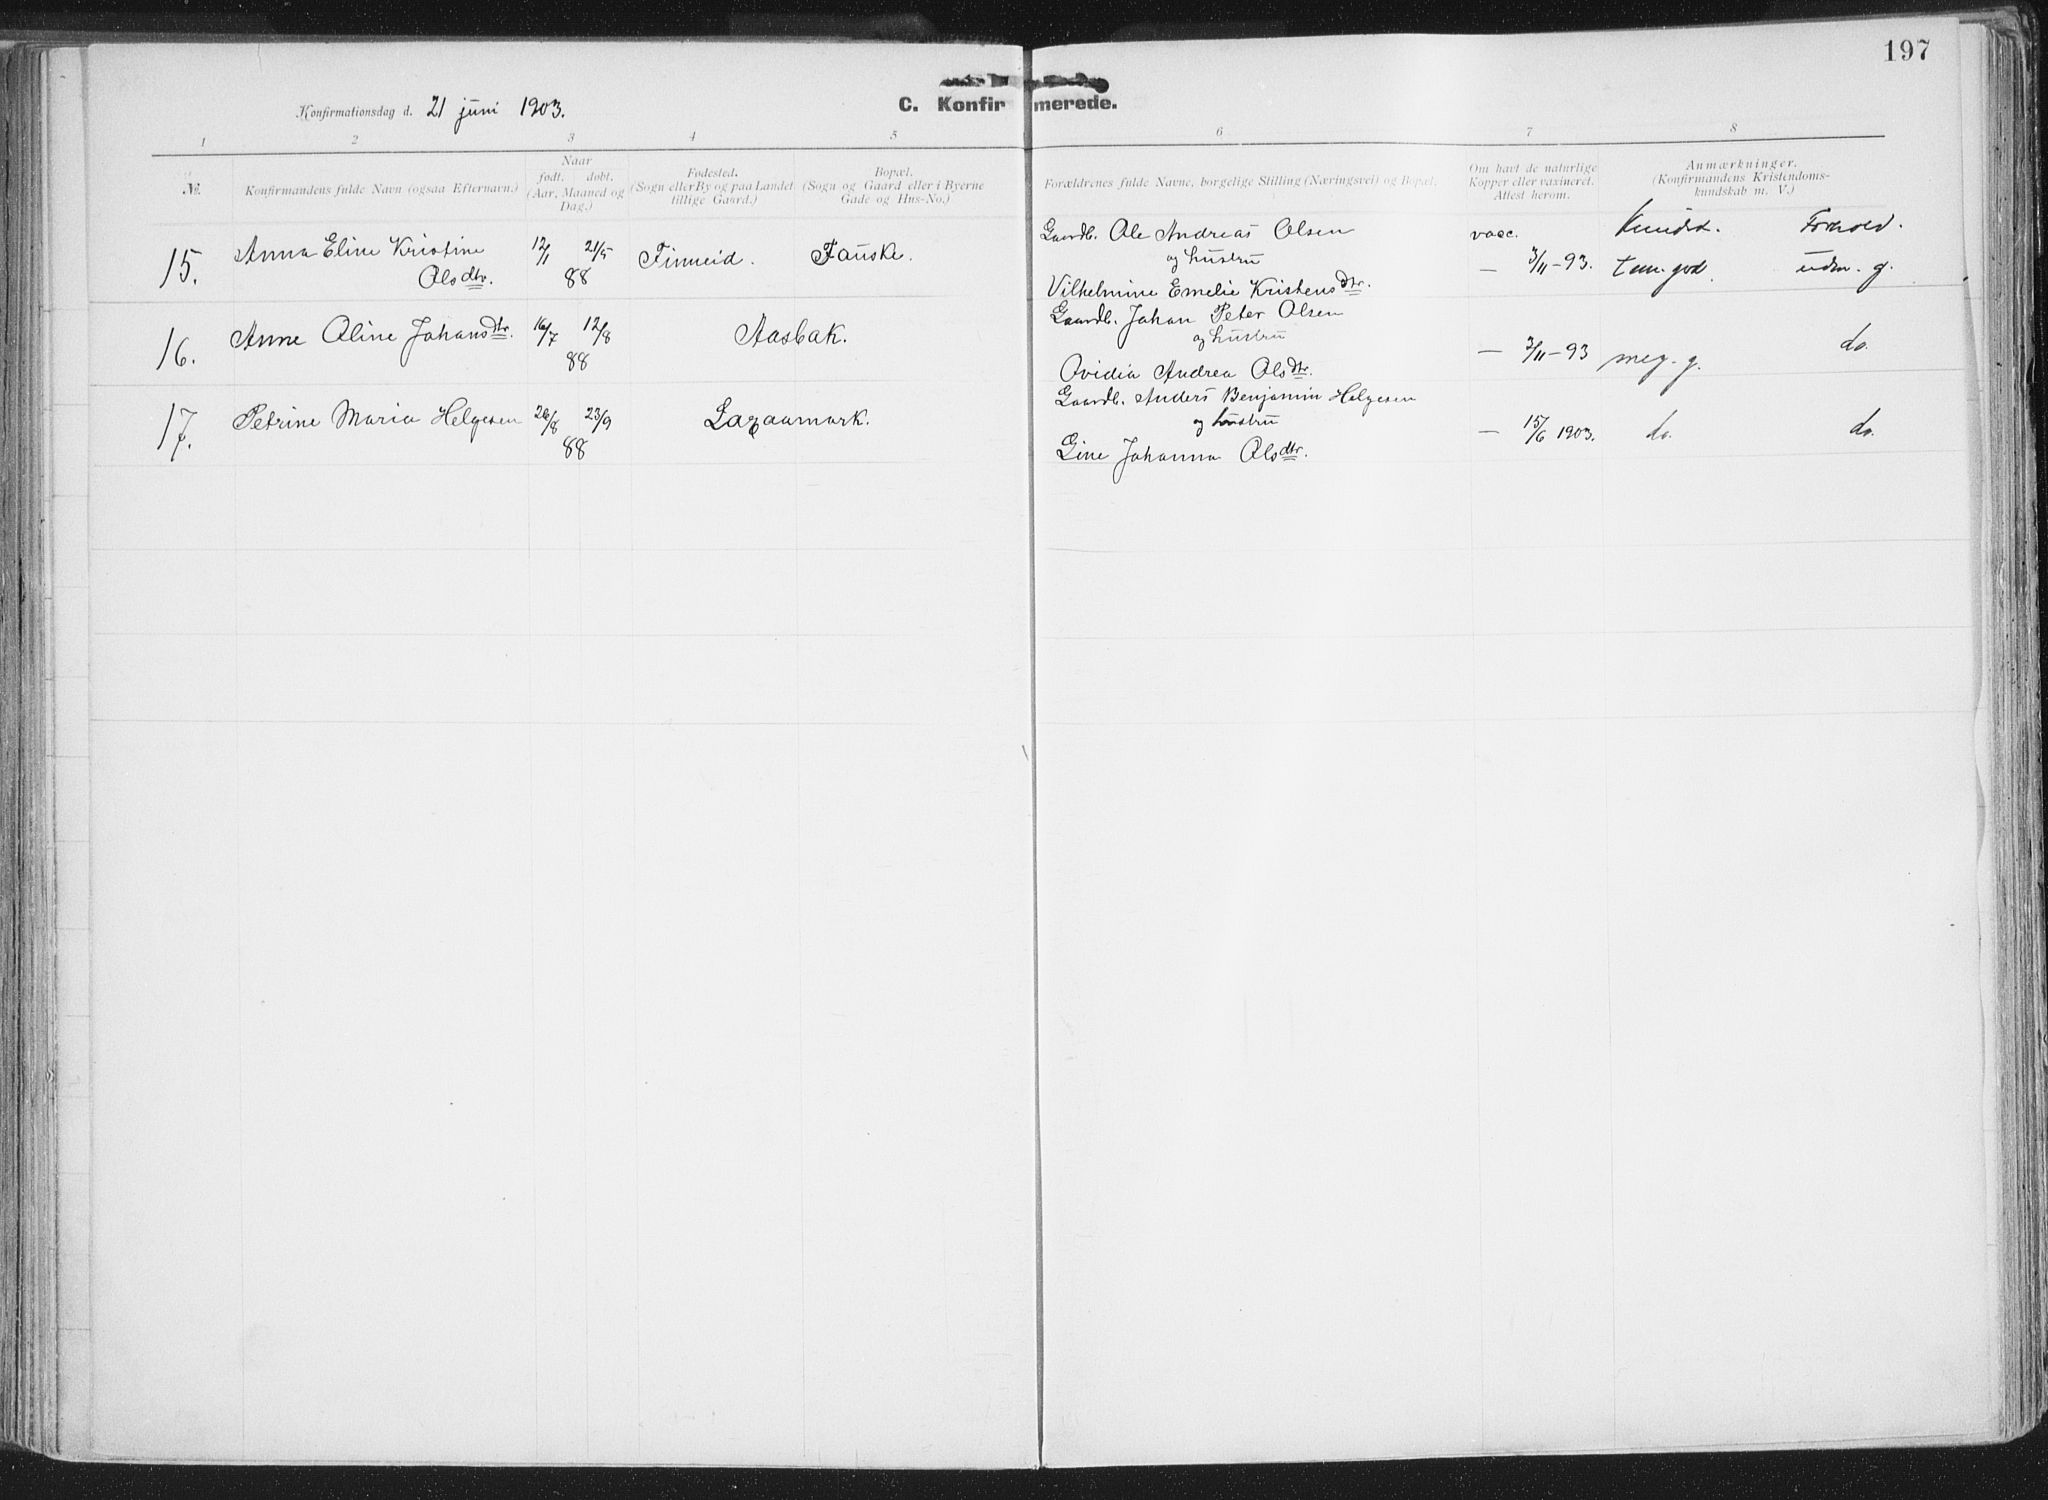 197
Konfirmationsdag d. 21 juni 1903.
C. Konfirmerede.
1 2 3 4 5 6 7 8
№.
Konfirmandens fulde Navn (ogsaa Efternavn.)
Naar
født. døbt.
(Aar, Maaned og
Dag.)
Fødested.
(Sogn eller By og paa Landet
tillige Gaard.)
Bopæl.
(Sogn og Gaard eller i Byerne
Gade og Hus-No.)
Forældrenes fulde Navne, borgelige Stilling (Næringsvei) og Bopæl.
Om havt de naturlige
Kopper eller vaxineret.
Attest herom.
Anmærkninger.
(Konfirmandens Kristendoms-
kundskab m. V.)
15. Anna Eline Kristine
Olsdtr.
12/1 21/5
88
Finneid. Fauske.
Gaardb. Ole Andreas Olsen
og hustru
Vilhelmine Emelie Kristensdtr.
vacc.
— 3/11-93.
Kundsk. Forhold.
tem. god. udm. g.
16. Anne Oline Johansdtr.
16/7 12/8
88
Aasbak.
Gaardb. Johan Peter Olsen
og hustru
Ovidia Andrea Olsdtr.
— 3/11-93 meg. g. do.
17. Petrine Maria Helgesen
26/8 23/9
88
Gaardb. Anders Benjamin Helgesen
og hustru
Gine Johanna Olsdtr.
— 15/6 1903. do. do.